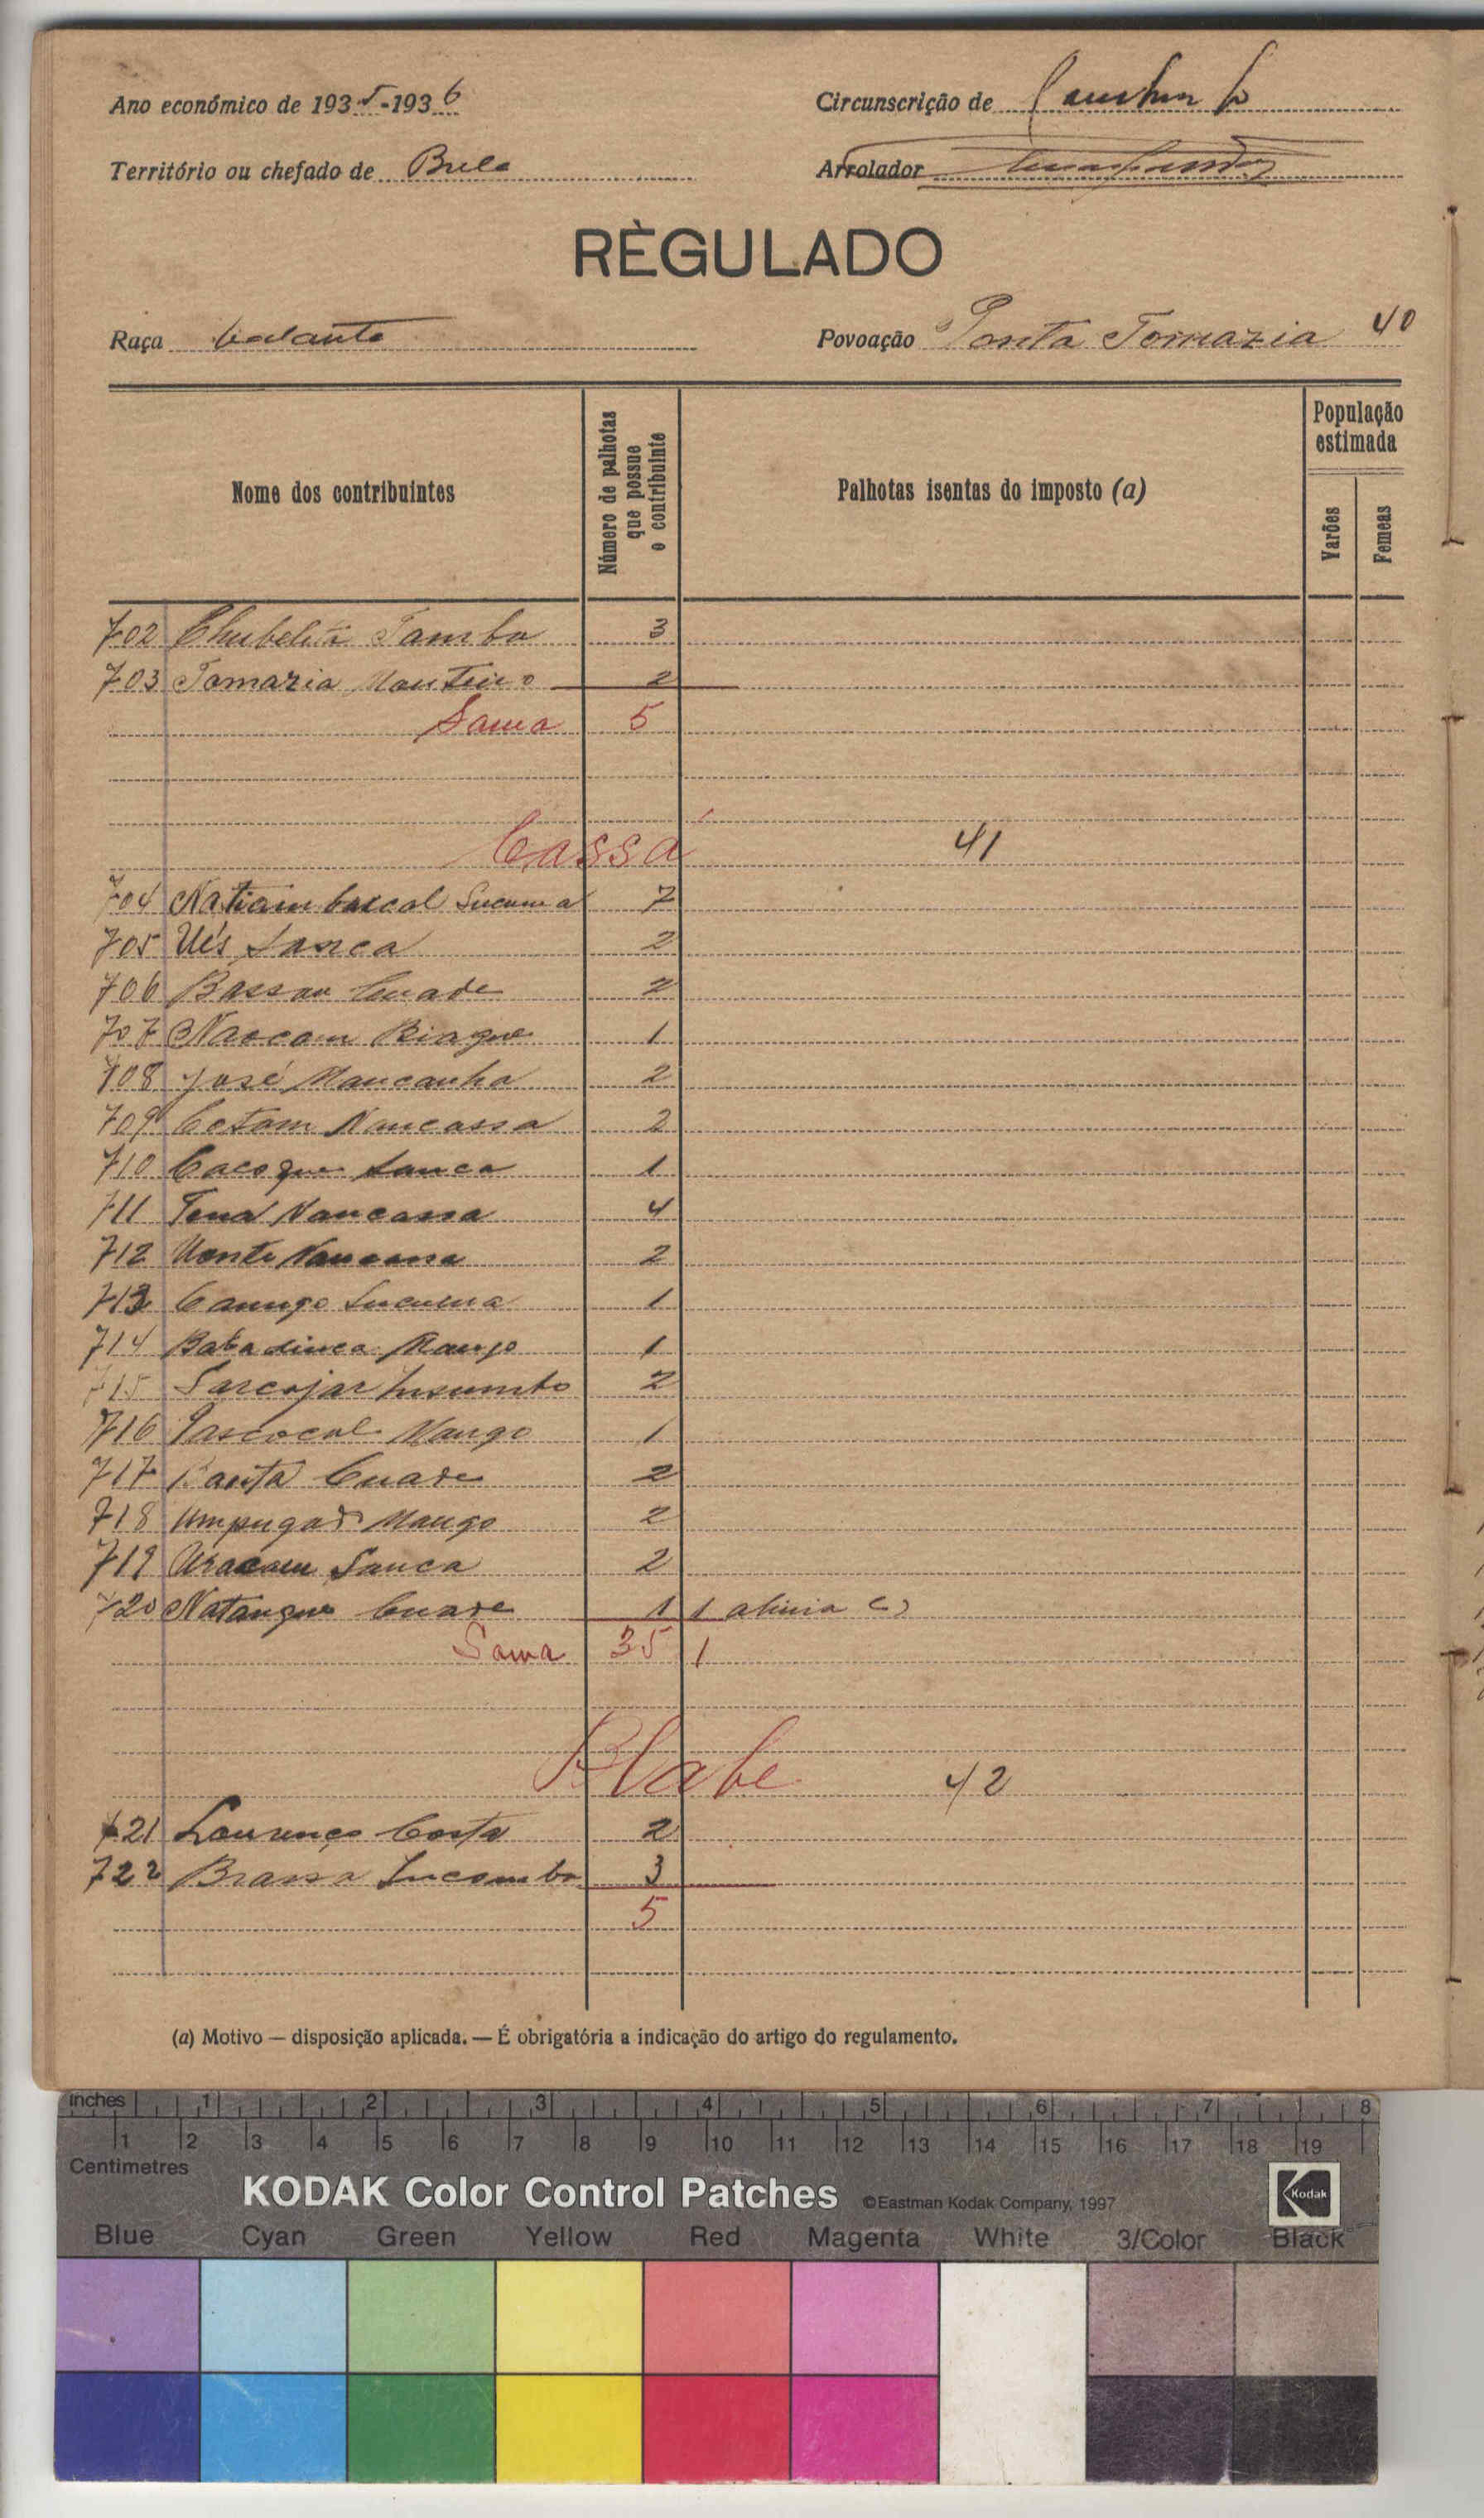 Ano económico de 1935-1936
Circunscrição de
Território ou chefado de Bula
Arrolador
RÈGULADO
Raça balanta
Povoação Ponta Tomazia 40
Nome dos contribuintes
Número de palhotas que possue o contribuinte
Palhotas isentas do imposto (a)
População estimada
Varões
Femeas
702 Tamba 3
703 Tomazia Monteiro 2
Soma 5
Cassá 41
704 Natiam Sucuma 7
705 Ués Sanca 2
706 Bassau Cuade 2
707 Naocam Biague 1
708 José Mancanha 2
709 Cotom Nancassa 2
710 Cacoque Sanca 1
711 Tena Nancassa 4
712 Uonte Nancassa 2
713 Canugo Sucuma 1
714 Babadinca Mango 1
715 2
716 Mango 1
717 Banta Cuade 2
718 Umpugad Mango 2
719 Uracam Sanca 2
720 Natangue Cuade 1 1 alinia c)
Soma 35 1
Blabe 42
721 Lourenço Costa 2
722 Brassa 3
5
(a) Motivo — disposição aplicada. — É obrigatória a indicação do artigo do regulamento.
inches 1 2 3 4 5 6 7 8
1 2 3 4 5 6 7 8 9 10 11 12 13 14 15 16 17 18 19
Centimetres
KODAK Color Control Patches ©Eastman Kodak Company, 1997 Kodak
Blue Cyan Green Yellow Red Magenta White 3/Color Black